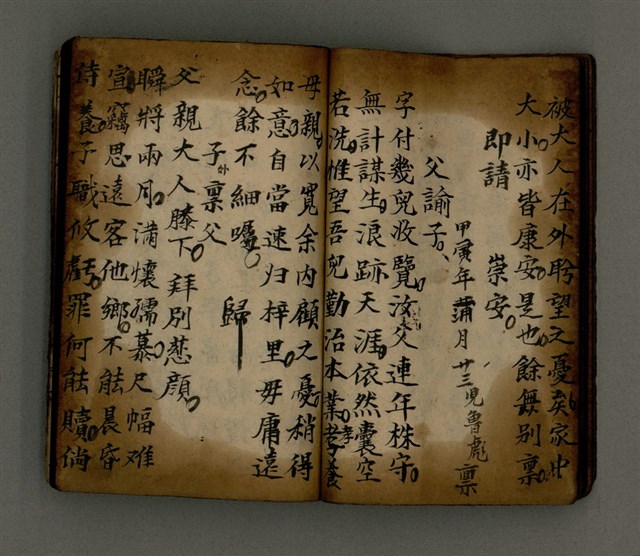 被大人在外盻望之憂矣家中
大小亦皆康安是也餘無别禀
即請　崇安
甲寅年蒲月廿三児魯彪禀
父諭子
字付幾兒收覽汝父連年株守
無計謀生浪跡天涯依然囊空
若洗惟望吾兒勤治本業孝養
毋親以寬余内顧之憂稍得
如意自當速归梓里毋庸遠
念餘不細囑　歸
子外禀父
父親大人膝下拜別慈顔
瞬將兩月满懷孺慕尺幅难
宣竊思遠客他鄉不能晨昏
侍養子職攸虧罪何能贖倘